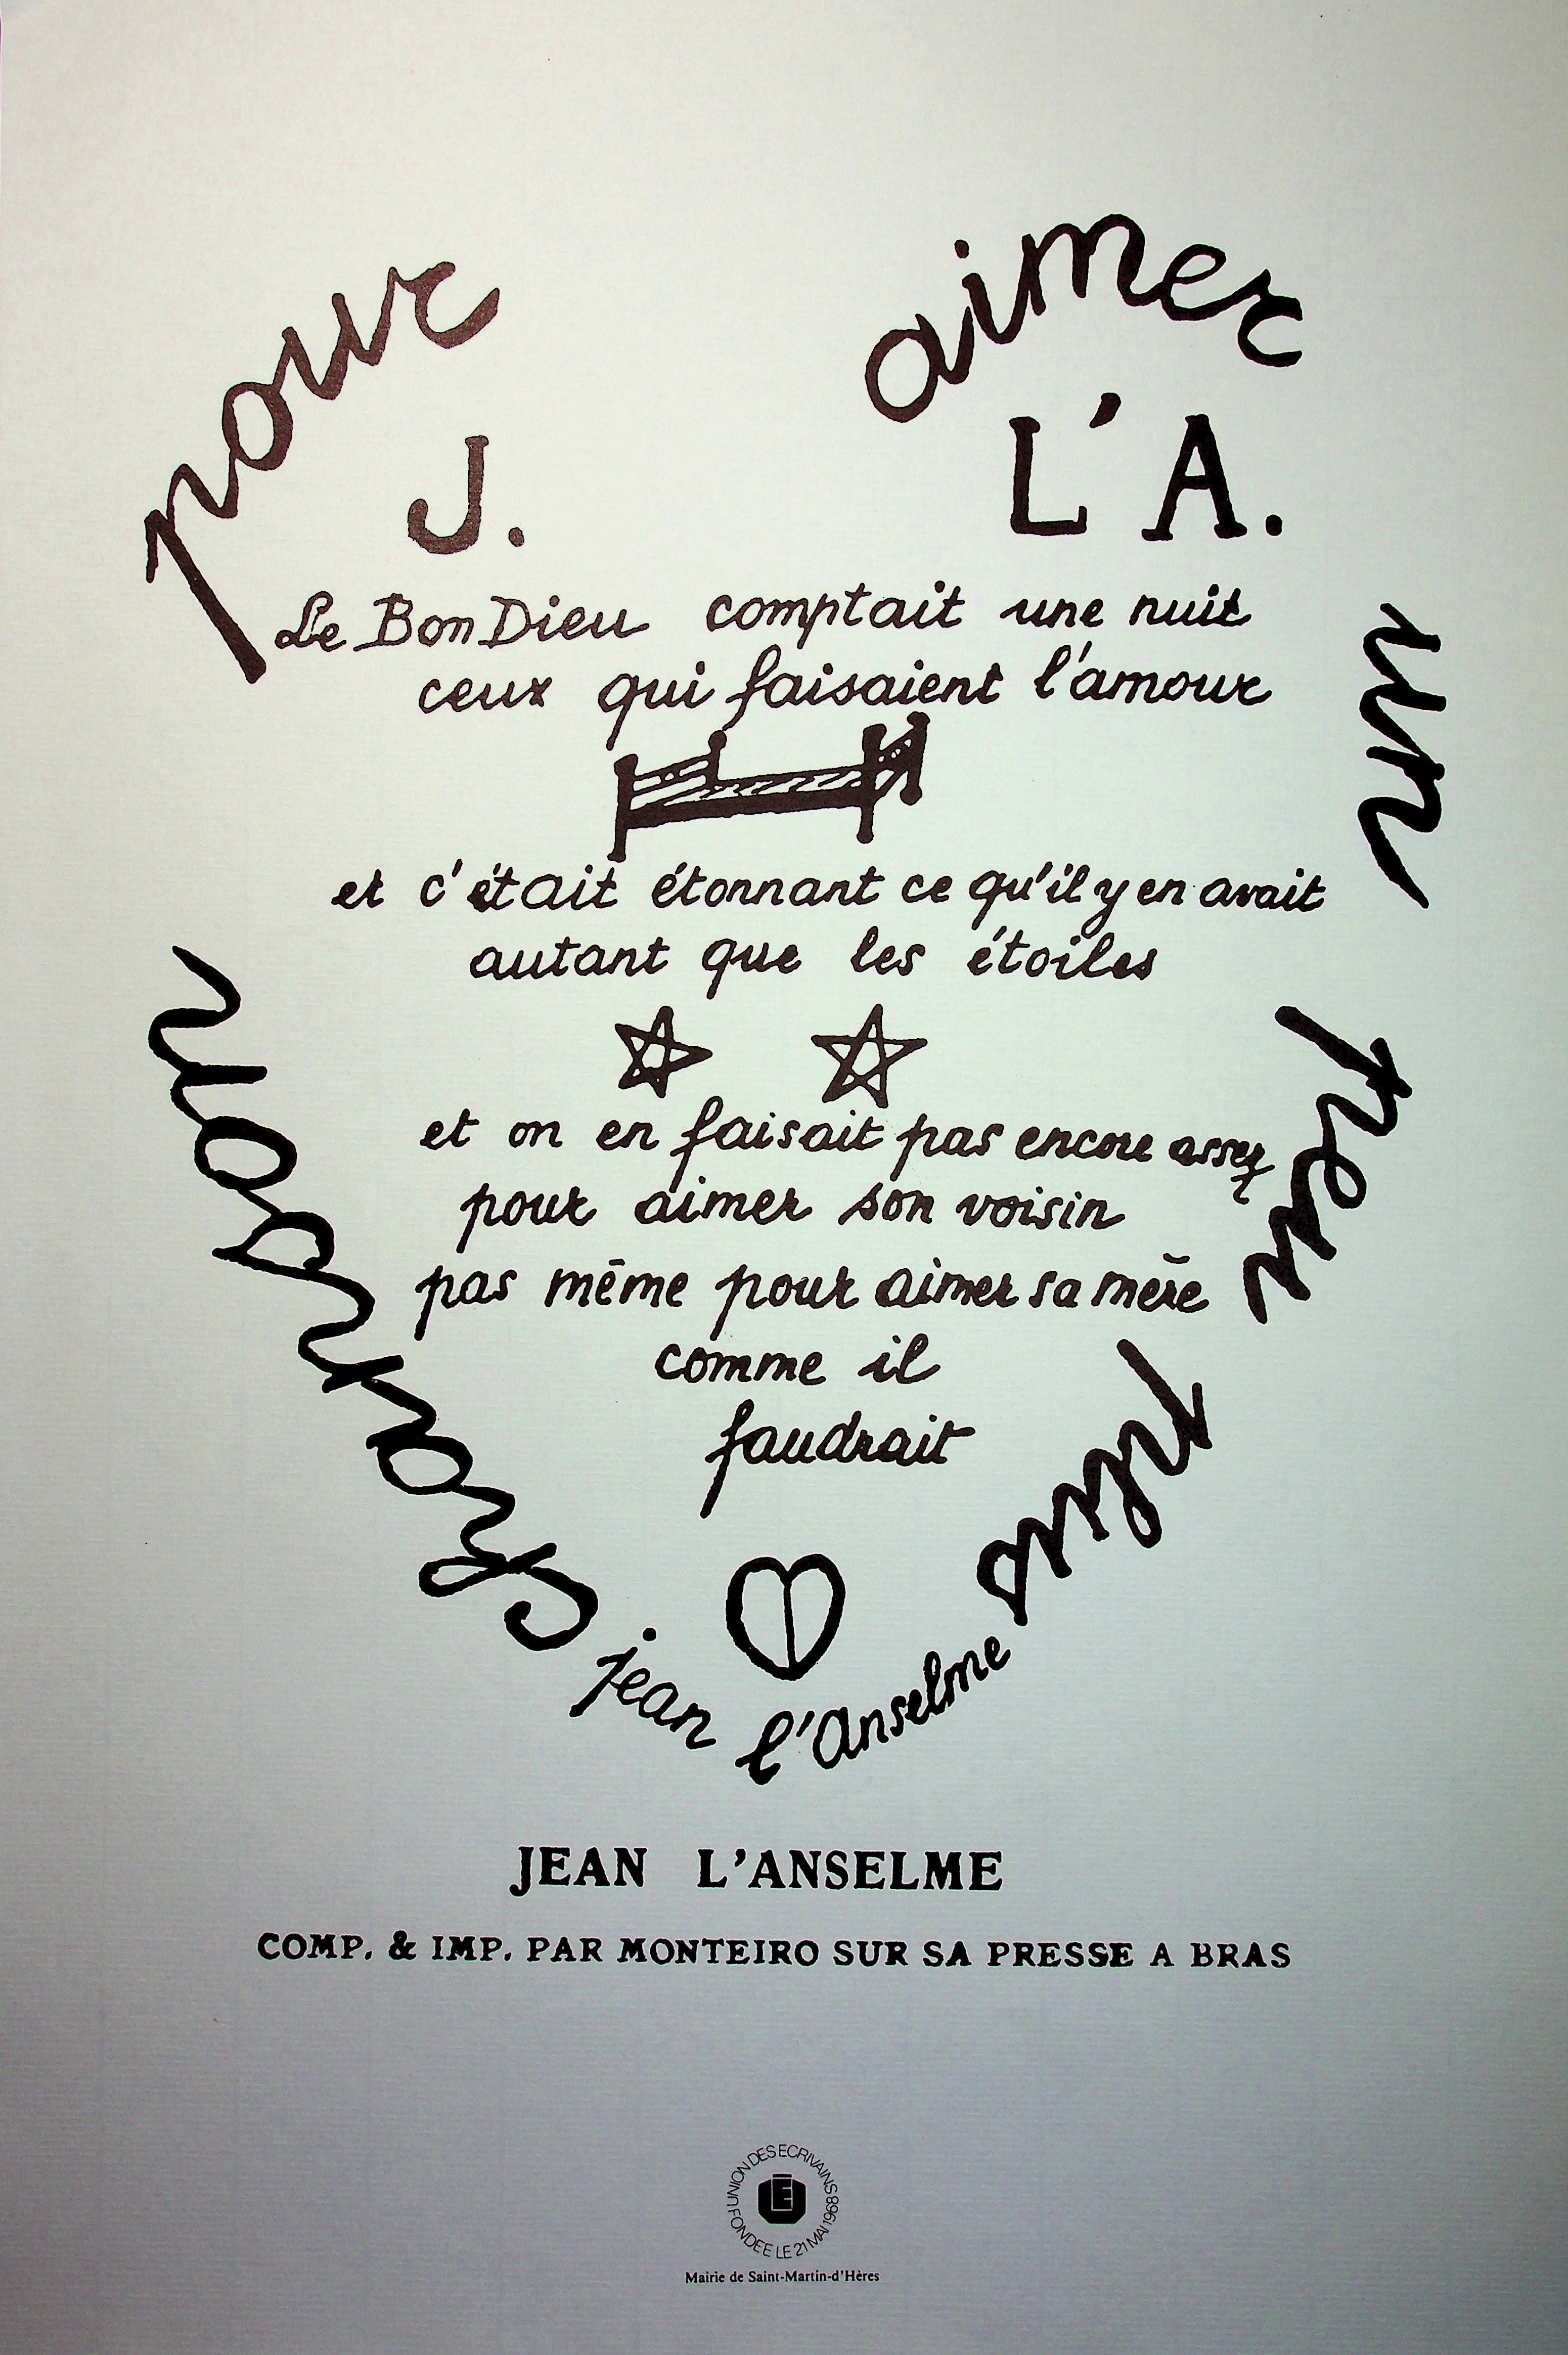 pour
aimer
J.
L'A.
Le Bon Dieu comptait une nuit
ceux qui faisaient l'amour
un
et c'était étonnant ce qu'il y en avait
autant que les étoiles
peu
et on en faisait pas encore assez
pour aimer son voisin
pas même pour aimer sa mère
comme il
faudrait
jean l'Anselme
JEAN L'ANSELME
COMP. & IMP. PAR MONTEIRO SUR SA PRESSE A BRAS
UNION DES ECRIVAINS
FONDEE LE 21 MAI 1968
Mairie de Saint-Martin-d'Hères